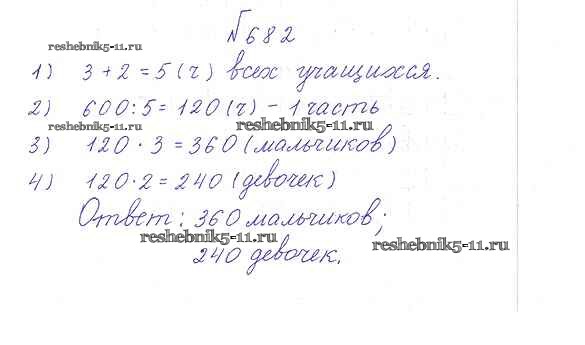 №682
reshebnik5-11.ru
1) 3+2=5(ч) всех учащихся.
2) 600:5=120(ч) - 1 часть
reshebnik5-11.ru reshebnik5-11.ru
3) 120·3=360(мальчиков)
4) 120·2=240(девочек)
Ответ: 360 мальчиков;
reshebnik5-11.ru reshebnik5-11.ru
240 девочек.